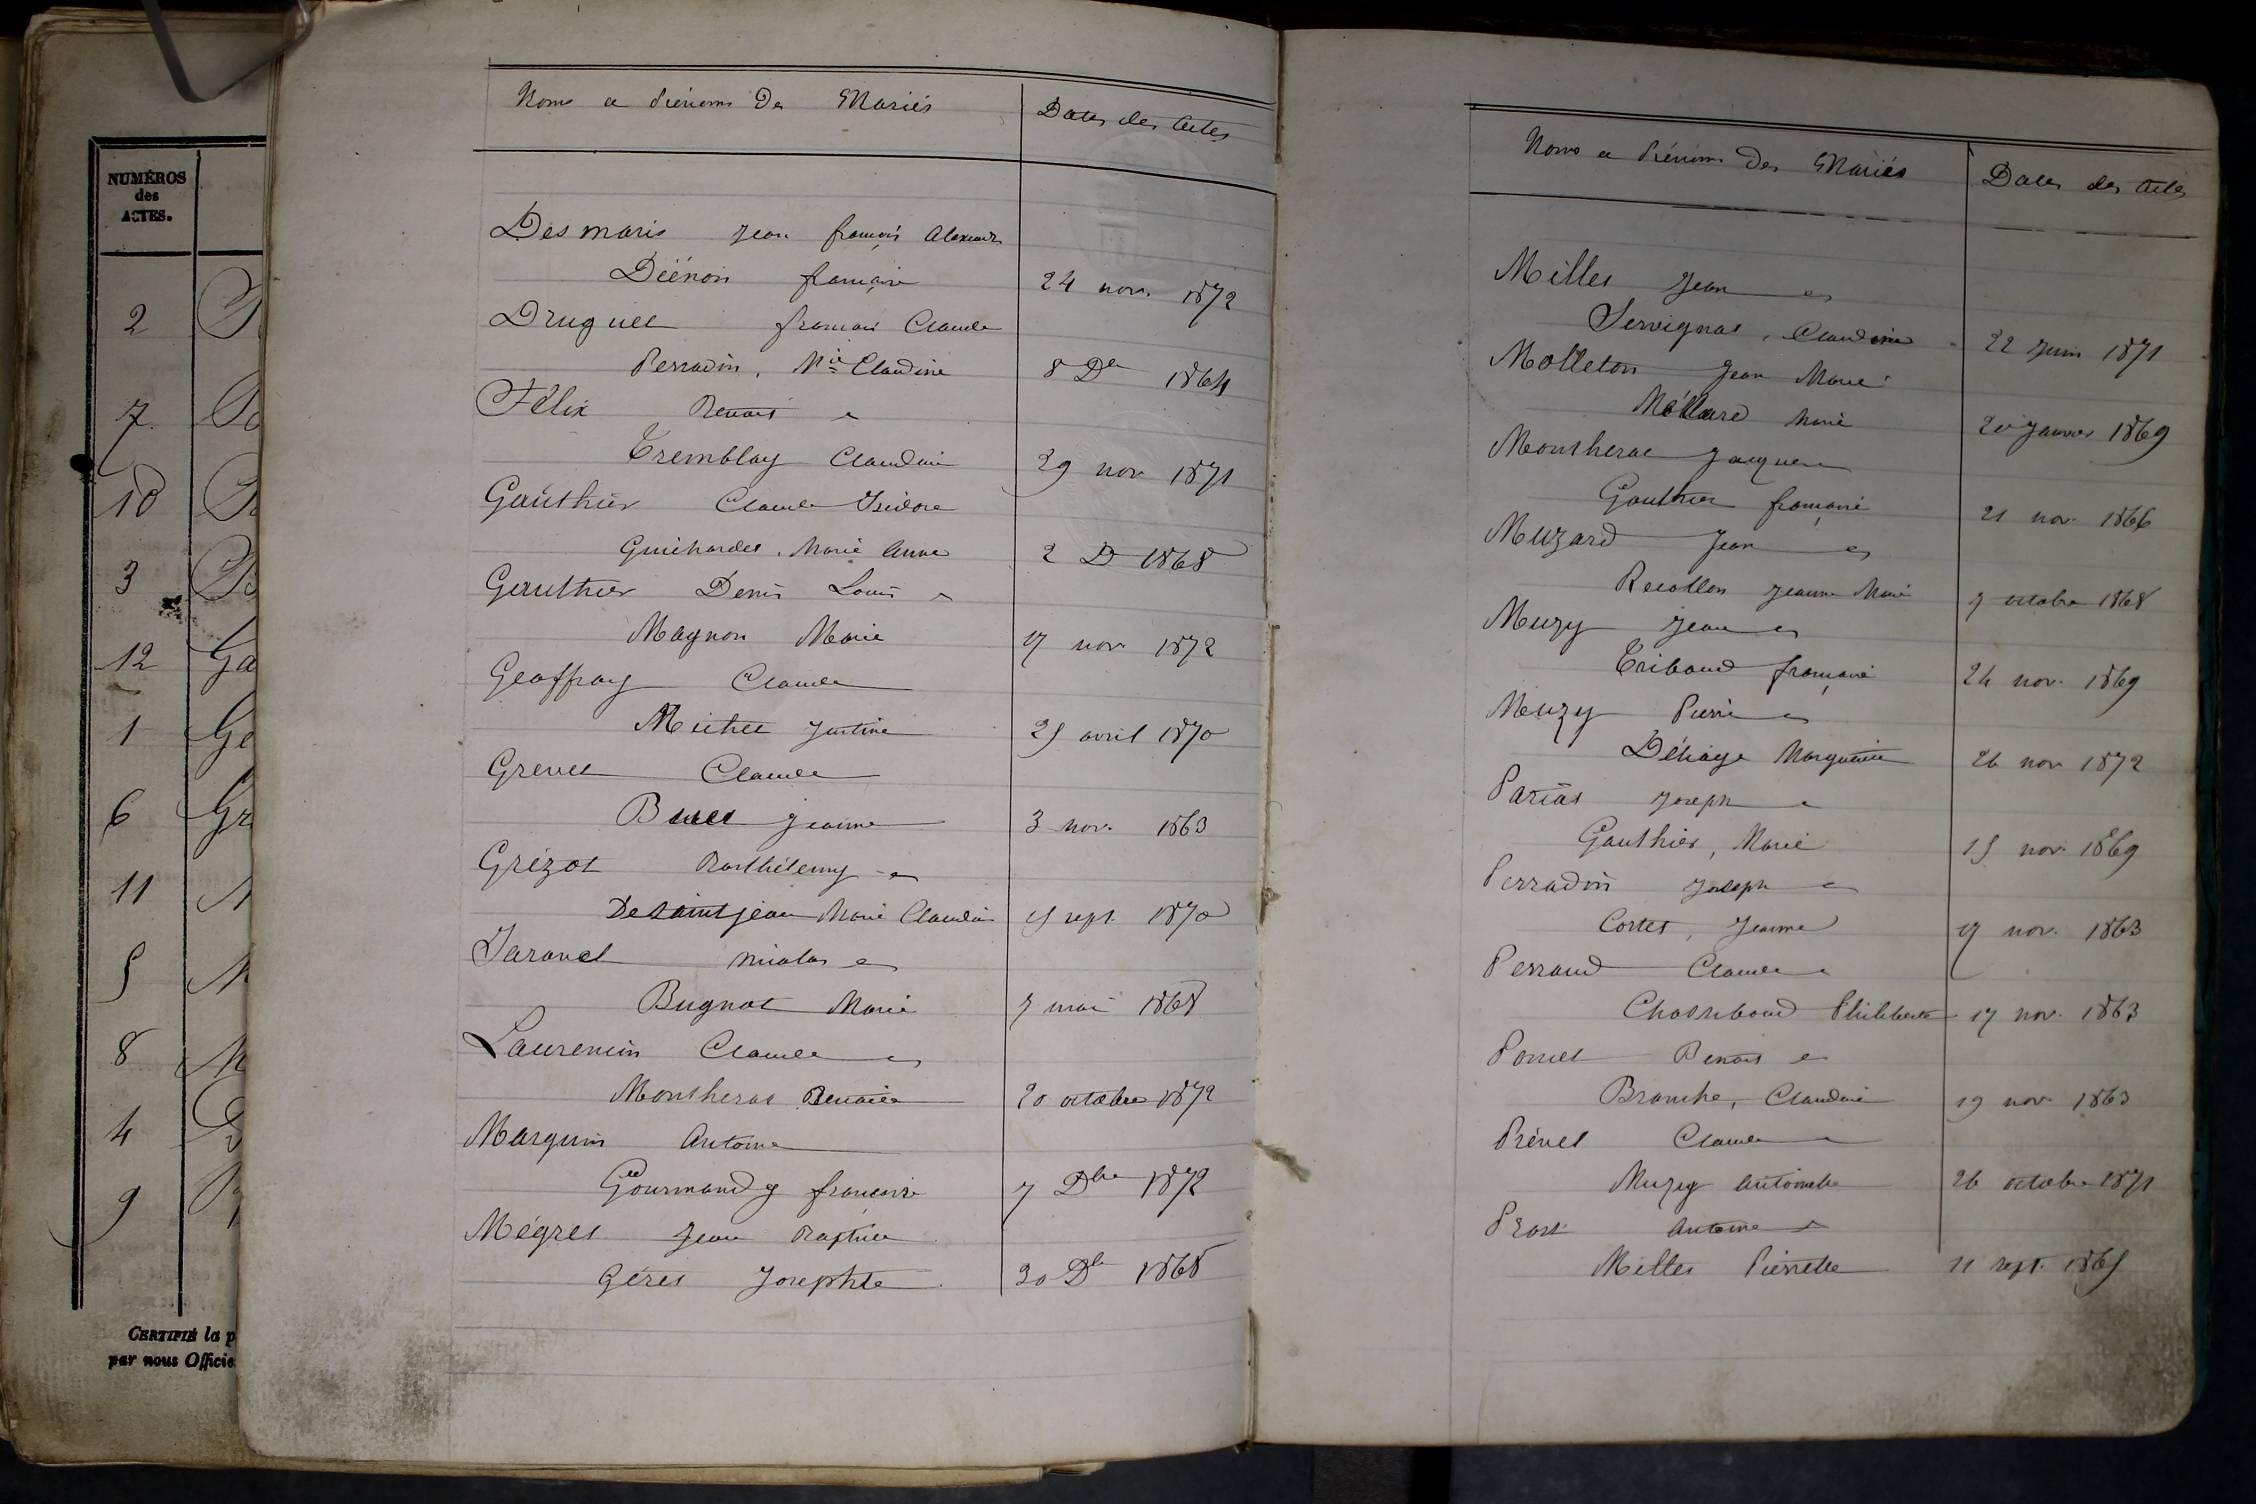 NUMÉROS
des
ACTES.
2
7
10
3
12 Ga
1 Ge
6 Gr
11
5
8
4
9
CERTIFIÉ la p
par nous Officie
Noms et Prénoms Des Mariés Dates des Actes
Desmaris Jean françois Alexandre
Diénon françoise 24 nov. 1872
Druguet françois Claude
Perradin, Mie Claudine 8 Dre 1864
Félix Benoit et
Tremblay Claudine 29 nov 1871
Gauthier Claude Isidore
Guichardet, Marie Anne 2 D 1868
Gauthier Denis Louis et
Magnon Marie 17 nov 1872
Geoffray Claude
Michet Justine 25 avril 1870
Grevet Claude
Buet Jeanne 3 nov. 1863
Grézot Barthélemy et
Desaintjean Marie Claudine 15 sept. 1870
Jaravet Nicolas et
Bugnot Marie 7 mai 1868
Laurencin Claude et
Montherat Benoite 20 octobre 1872
Marguin Antoine
Gourmandy françoise 7 Dbre 1872
Mégret Jean Baptiste
Géret Josephte 30 Dbre 1868
Noms et Prénoms Des Mariés Dates des Actes
Milles Jean et
Servignat, Claudine 22 Juin 1871
Molleton Jean Marie
Méllard Marie 20 Janvier 1869
Montherat Jacques
Gauthier françoise 21 nov. 1866
Muzard Jean et
Recollon Jeanne Marie 7 octobre 1868
Muzy Jean et
Tribaud françoise 24 nov. 1869
Muzy Pierre et
Déliage Marguerite 26 nov 1872
Pariat Joseph et
Gauthier, Marie 15 nov. 1869
Perradin Joseph et
Cortet, Jeanne 17 nov. 1863
Perraud Claude et
Chassiboud Philiberte 17 nov. 1863
Poncet Benoit et
Branche, Claudine 19 nov 1863
Prévet Claude
Muzy Antoinette 26 octobre 1871
Prost Antoine et
Milles Pierrette 11 sept. 1865